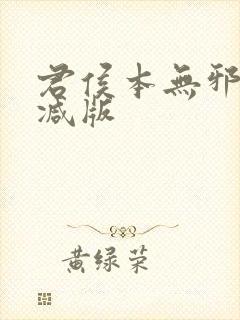 君侯本無邪
减版
黄绿荣